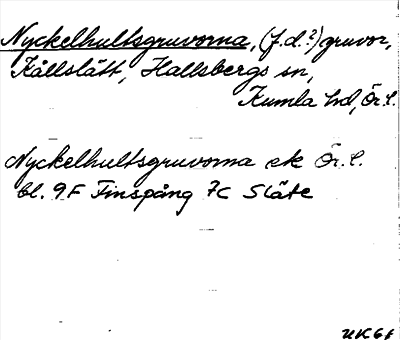 Nyckelhultsgruvorna, (f.d.?) gruvor,
Kållslätt, Hallsbergs sn,
Kumla hd, Ör. l.
Nyckelhultsgruvorna ek Ör. l.
bl. 9F Finspång 7c Släte